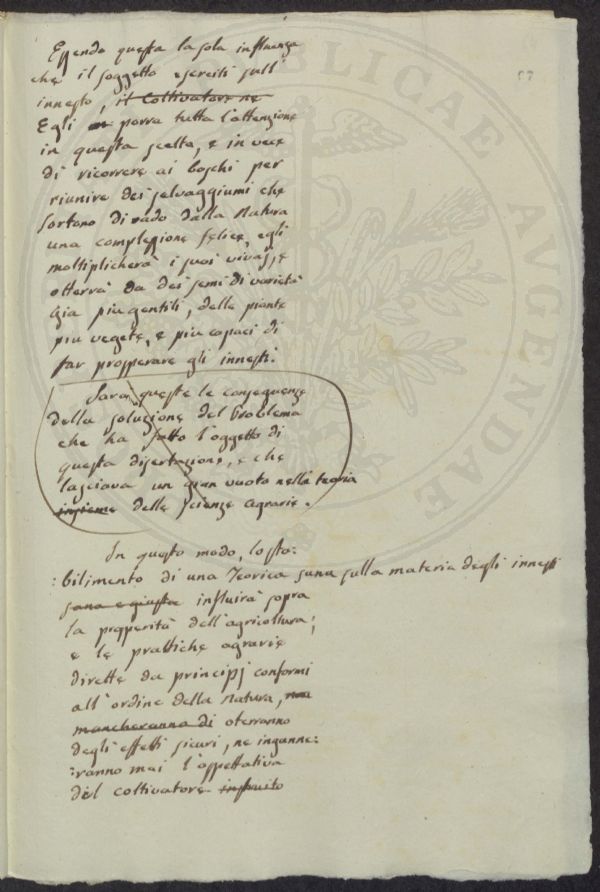 57
Essendo questa la sola influenza
che il soggetto eserciti sull'
innesto, il Coltivatore ne
Egli porrà tutta l'attenzione
in questa scelta, e in vece
di ricorrere ai boschi per
riunire dei selvaggiumi che
sortono di rado dalla Natura
una complessione felice, egli
moltiplicherà i suoi vivaj, e
otterrà da dei semi di varietà
già più gentili, delle piante
più vegete, e più capaci di
far prosperare gli innesti.
Saran queste le conseguenze
della soluzione del Problema
che ha fatto l'oggetto di
questa disertazione, e che
lasciava un gran vuoto nella teoria
insieme delle scienze agrarie.
In questo modo, lo sta:
:bilimento di una Teorica sana sulla materia degli innesti
sana e giusta influirà sopra
la prosperità dell'agricoltura;
e le prattiche agrarie
dirette da principj conformi
all'ordine della Natura, non
mancheranno di oterranno
degli effetti sicuri, ne inganne:
:ranno mai l'aspettativa
del coltivatore instruito
PUBLICAE AUGENDAE